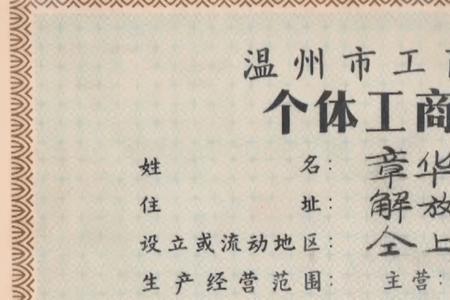 温州市工
个体工商
姓名：章华
住址：解放
设立或流动地区：仝上
生产经营范围：主营：